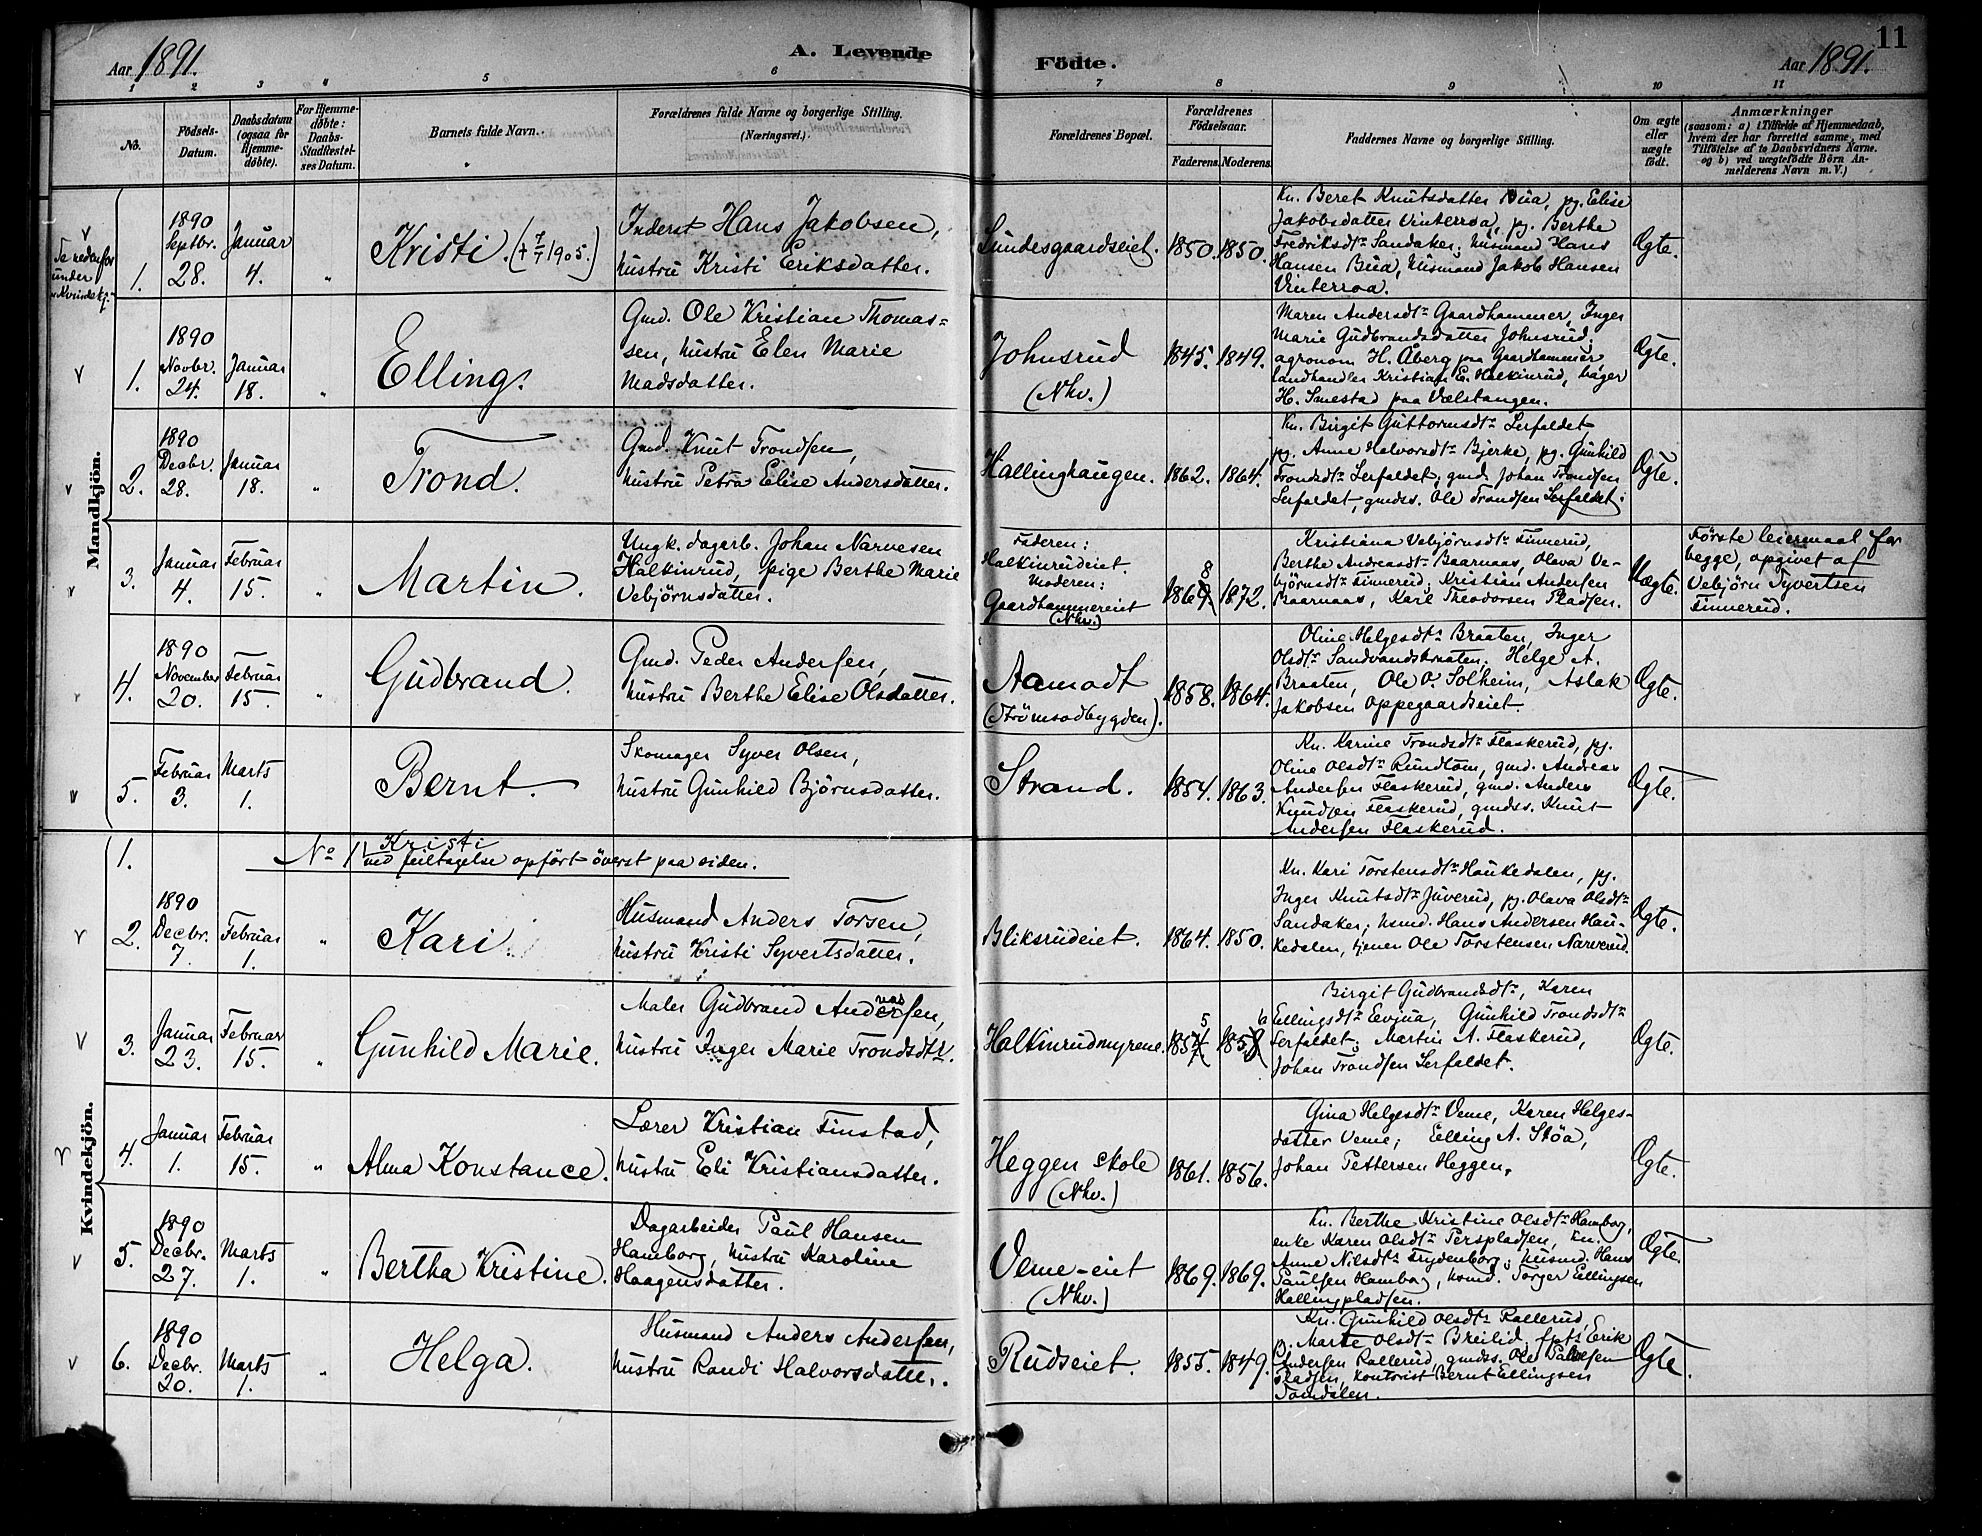 Aar 1891.
A. Levende
Födte.
Aar 1891.
11
1 2 3 4 5 6 7 8 9 10 11
No.
Födsels-
Datum.
Daabsdatum
(ogsaa for
Hjemme-
döbte).
For Hjemme-
döbte:
Daabs-
Stadfæstel-
ses Datum.
Barnets fulde Navn.
Forældrenes fulde Navne og borgerlige Stilling.
(Næringsvei.)
Forældrenes Bopæl.
Forældrenes
Födselsaar.
Faderens. Moderens.
Faddernes Navne og borgerlige Stilling.
Om ægte
eller
uægte
födt.
Anmærkninger
(saasom: a) i Tilfælde af Hjemmedaab,
hvem der har forrettet samme, med
Tilföielse af to Daabsvidners Navne.
og b) ved uægtefödte Börn An-
melderens Navn m. V.)
Se nedenfor
under
Kvindekj.
Mandkjön.
1.
1890
Septbr.
28.
Januar
4.
"
Kristi. (+ 7/7 1905.)
Inderst Hans Jakobsen,
hustru Kristi Eriksdatter.
Lundesgaardseiet.
1850. 1850.
Kn. Beret Knutsdatter Bua, pg. Elise
Jakobsdatter Vinterroa, pg. Berthe
Fredriksdtr. Sandaker; husmand Hans
Hansen Bua, husmand Jakob Hansen
Vinterroa.
Ægte.
1.
1890
Novbr.
24.
Januar
18.
"
Elling.
Gmd. Ole Kristian Thomas=
sen, hustru Elen Marie
Madsdatter.
Johnsrud
(Nhv.)
1845. 1849.
Maren Andersdtr. Gaardhammer, Inger
Marie Gudbrandsdatter Johnsrud;
agronom H. Åberg paa Gaardhammer
landhandler Kristian E. Halkinrud,
H. Smestad paa Vælstangen.
Ægte.
2.
1890
Decbr.
28.
Januar
18.
"
Trond.
Gmd. Knut Trondsen,
hustru Petra Elise Andersdatter.
Hallinghaugen.
1862. 1864.
Kn. Birgit Guttormsdtr. Serfaldet
pg. Anne Halvorsdtr. Bjerke, pg. Gunhild
Trondsdtr. Serfaldet; gmd. Johan Trondsen
Serfaldet, gmds. Ole Trondsen Serfaldet;
Ægte.
3.
Januar
4.
Februar
15.
"
Martin.
Ungk. dagarb. Johan Narvesen
Halkinrud, pige Berthe Marie
Vebjørnsdatter.
Faderen:
Halkinrudeiet.
Moderen:
Gaardhammereiet
(Nhv.)
8
1869. 1872.
Kristiana Vebjørnsdtr. Finnerud,
Berthe Andreasdtr. Baarnaas, Olava Ve-
bjørnsdtr. Finnerud; Kristian Andersen
Baarnaas, Karl Theodorsen Pladsen.
Uægte.
Første leiermaal for
begge, opgivet af
Vebjörn Syvertsen
Finnerud.
4.
1890
November
20.
Februar
15.
"
Gudbrand.
Gmd. Peder Andersen,
hustru Berthe Elise Olsdatter.
Aamodt
(Strømsodbygden).
1858. 1864.
Oline Helgesdtr. Braaten, Inger
Olsdtr. Sandvandsbraaten; Helge A.
Braaten, Ole O. Solheim, Aslak
Jakobsen Oppegaardseiet.
Ægte.
5.
Februar
3.
Marts
1.
Bernt.
Skomager Syver Olsen,
hustru Gunhild Bjørnsdatter.
Strand.
1854. 1863.
Kn. Karine Trondsdtr. Flaskerud, pg.
Oline Olsdtr. Rundtom, gmd. Andreas
Andersen Flaskerud, gmd. Anders
Knudsen Flaskerud, gmds. Knut
Andersen Flaskerud.
Ægte.
Kvindekjön.
1.
No 1 Kristi
ved feiltagelse opfört överst paa siden.
2.
1890
Decbr.
7.
Februar
1.
"
Kari.
Husmand Anders Torsen,
hustru Kristi Syvertsdatter.
Bliksrudeiet.
1864. 1850.
Kn. Kari Torstensdtr. Haukedalen, pg.
Inger Knutsdtr. Juverud, pg. Olava Olsdtr.
Sandaker; husmd. Hans Andersen Hau-
kedalen, tjener Ole Torstensen Narverud.
Ægte.
3.
Januar
23.
Februar
15.
"
Gunhild Marie.
Maler Gudbrand Andersen,
hustru Inger Marie Trondsdtr.
Halkinrudmyrene.
5 6
1854 1858
Birgit Gudbrandsdtr., Karen
Ellingsdtr. Evjua, Gunhild Trondsdtr.
Serfaldet; Martin A. Flaskerud,
Johan Trondsen Serfaldet.
Ægte.
4.
Januar
1.
Februar
15.
"
Alma Konstance.
Lærer Kristian Finstad,
hustru Eli Kristiansdatter.
Heggen skole
(Nhv.)
1861. 1856.
Gina Helgesdtr. Veme, Karen Helges-
datter Veme; Elling A. Støa,
Johan Pettersen Heggen.
Ægte.
5.
1890
Decbr.
27.
Marts
1.
"
Bertha Kristine.
Dagarbeider Paul Hansen
Hamborg, hustru Karoline
Haagensdatter.
Veme-eiet
(Nhv.)
1869. 1869.
Kn. Berthe Kristine Olsdtr. Hamborg,
enke Karen Olsdtr. Perspladsen, kn.
Anne Nilsdtr. Frydenborg; husmd. Hans
Paulsen Hamborg, husmd. Torger Ellingsen
Hallingpladsen.
Ægte.
6.
1890
Decbr.
20.
Marts
1.
"
Helga.
Husmand Anders Andersen,
hustru Randi Halvorsdatter.
Rudseiet.
1855. 1849.
Kn. Gunhild Olsdtr. Rallerud,
p. Marte Olsdtr. Breilid, fptr. Erik
Andersen Rallerud, gmds. Ole Paulsen
Pladsen, kontorist Bernt Ellingsen
Tomdalen.
Ægte.